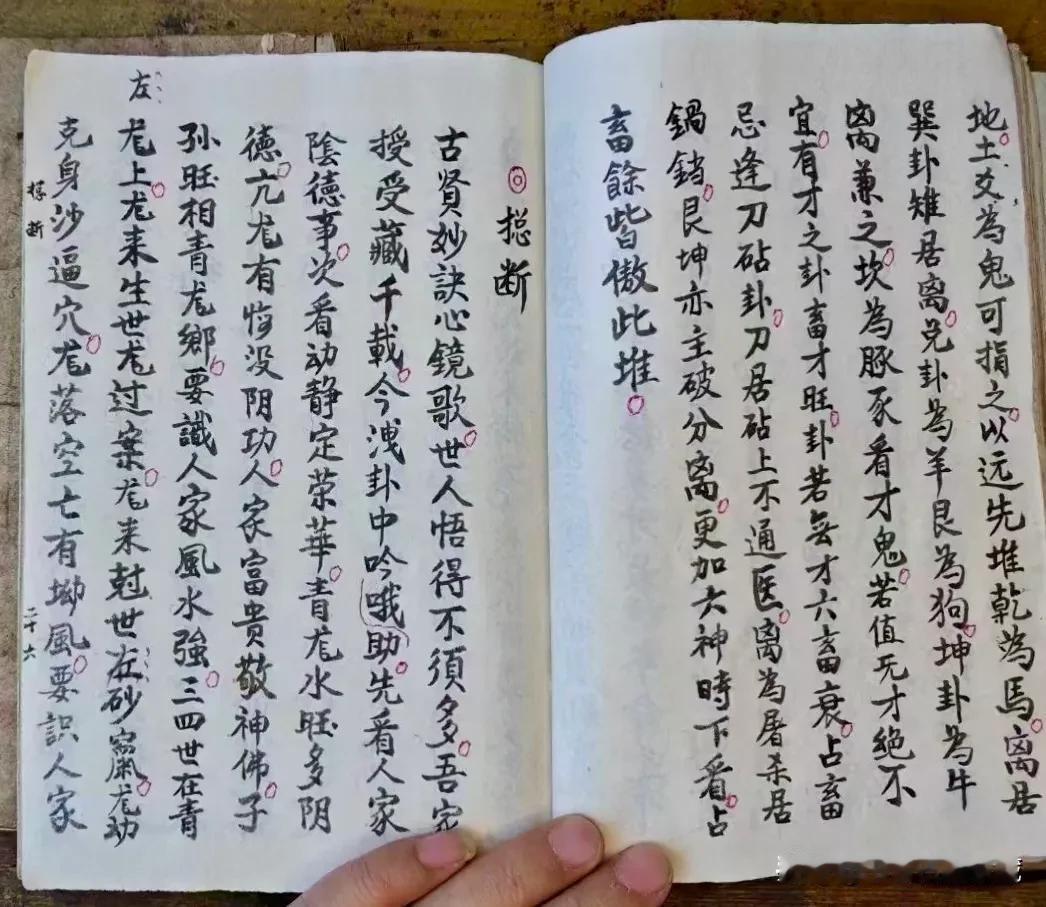 地。土爻為鬼可指之。以远先堆乾為馬。离居
巽卦雉居离。兑卦為羊艮為狗。坤卦為牛
离兼之。坎為豚豕看才鬼。若值无才絶不
宜。有才之卦畜才旺。卦若無才六畜衰。占畜
忌逢刀砧卦。刀居砧上不通医。离為屠杀居
鍋鐺。艮坤亦主破分离。更加六神時下看。占
畜餘皆倣此堆。
◎ 捴断
古贤妙訣心鏡歌。世人悟得不須多。吾家
授受藏千載。今洩卦中吟哦助。先看人家
陰德事。次看动静定荣華。青尨水旺多阴
德。亢尨有悔没阴功。人家富贵敬神佛。子
孙旺相青尨鄉。要識人家風水強。三四世在青
尨上。尨来生世尨过案。尨来尅世在砂窠。尨动
左
克身沙逼穴。尨落空亡有坳風。要識人家
捴断
二十六